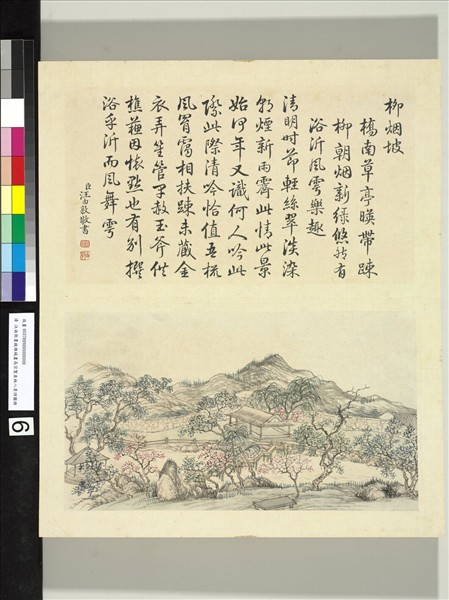 柳烟坡
橋南草亭暎帶疎
柳朝烟新綠悠然有
浴沂風雩樂趣
清明時節輕絲翠淡染
朝煙新雨霽此情此景
始何年又識何人吟此
際此際清吟恰值吾梳
風冐靄相扶踈未藏金
衣弄笙管早赦玉斧供
樵蘓因悵點也有別撰
浴乎沂而風舞雩
臣汪由敦敬書
6